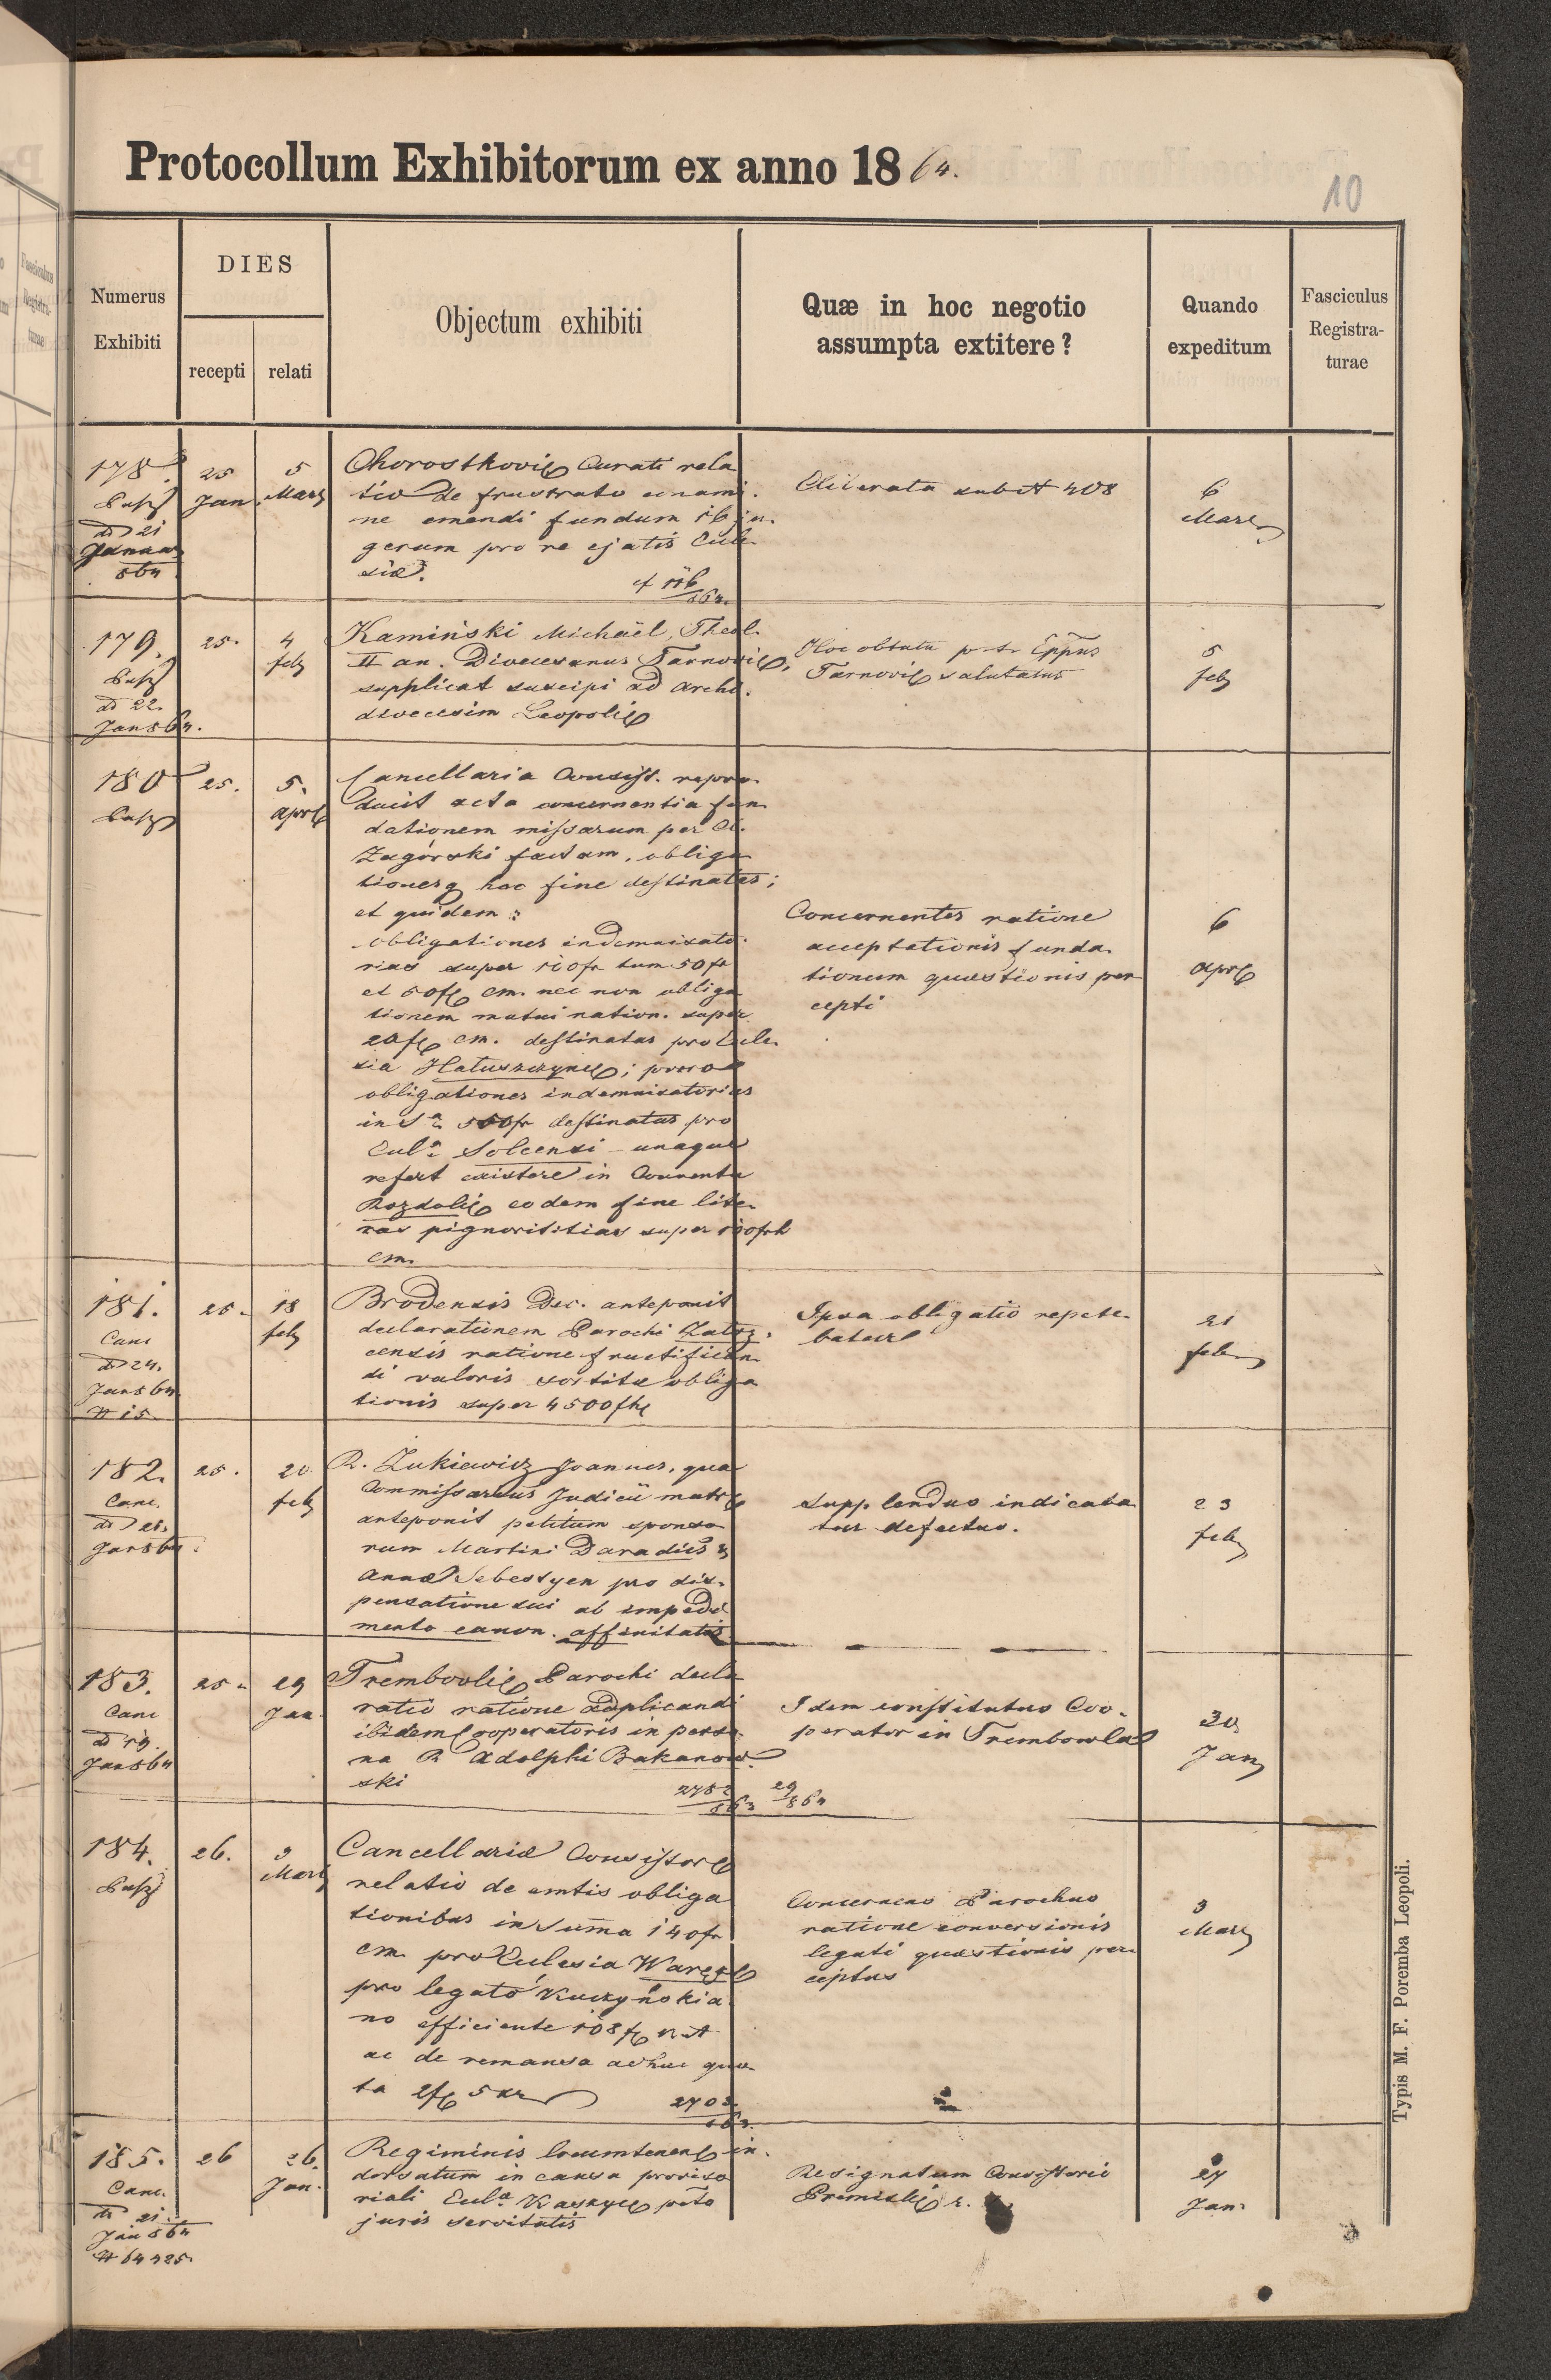 Protocollum Exhibitorum ex anno 1864.
10
Numerus Exhibiti
DIES
recepti
relati
Objectum exhibiti
Quæ in hoc negotio
assumpta extitere?
Quando
expeditum
Fasciculus
Registra-
turae
178.
dd 21
Januar
864
25
Jan.
5
Mart
Chorostkovi Curati rela
tio de frustrato conami-
ne emendi fundum 16 ju-
gerum pro re ejatis Eccle-
siæ.
cf 116
864.
Elaborata sub N 408
6
Mart
179.
dd 22.
Jan 864.
25.
4
feb
Kamiński Michaël, Theol.
II an. Diœcesanus Tarnovi
supplicat suscipi ad Archi-
diœcesim Leopoli
Hoc obtutu Eppus
Tarnovi salutatus
5
feb
180
25.
5.
apr
Cancellaria Consist. repro-
ducit acta concernentia fun-
dationem missarum per
Zagórski factam, obliga
tionesq hoc fine destinatas;
et quidem:
obligationes indemnisato-
rias super 100fr tum 50fr
et 50f cm. nec non obliga
tionem mutui nation. super
20f cm. destinatas pro Eccle-
sia Hałuszczync; porro
obligationes indemnisatorias
in Sa 500fr destinatas pro
Eccla Solcensi unaque
refert existere in Conventu
Rozdoli eodem fine lite-
ras pignorititias super 100fr
cm.
Concernentes ratione
acceptationis funda-
tionum quæstionis per
cepti
6
apr
181.
Canc
dd 24.
Jan 864
N 15.
25.
18
feb
Brodensis Dec. anteponit
declarationem Parochi Załoz-
censis ratione fructifican-
di valoris sortitæ obliga
tionis super 4500f
Ipsa obligatio repete-
batur
21
feb
182.
Canc.
dd 21.
Jan 864.
25.
20
feb
R. Zukiewicz Joannes, qua
Commissarius Judicii matr
anteponit petitum sponso
rum Martini Daradics &
Annæ Sebestyen pro dis-
pensatione sui ab impedi
mento canon. affinitatis
Supplendus indicaba
tur defectus.
23
feb
183.
Canc
dd 19.
Jan 864
25.
29
Jan.
Trembovli Parochi decla
ratio ratione adplicandi
ibidem Cooperatoris in perso-
na R. Adolphi Bakanow-
ski
2782
863
29
864
Idem constitutus Coo-
perator in Trembowla
30
Jan
184.
26.
3
Mart
Cancellariæ Consistor
relatio de emtis obliga
tionibus in Suma 140fr
cm. pro Ecclesia Waręż
pro legato Kuczyńskia
no efficiente 108 f
ac de remansa adhuc quo-
ta 2f 5 kr
2703
863.
Concernens Parochus
ratione conversionis
legati quæstionis per
ceptus
3
Mart
185.
Canc.
dd 21.
Jan 864
N 64425.
26
26.
Jan.
Regiminis locumtenent in-
dorsatum in causa proviso
riali Eccla pcto
juris servitutis
Resignatum Consistorio
Premisli r. l.
27
Jan.
Typis M. F. Poremba Leopoli.